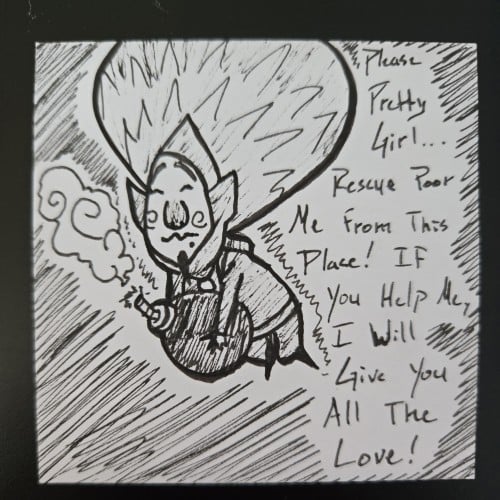 Please
Pretty
Girl...
Rescue Poor
Me From This
Place! IF
You Help Me,
I Will
Give You
All The
Love!